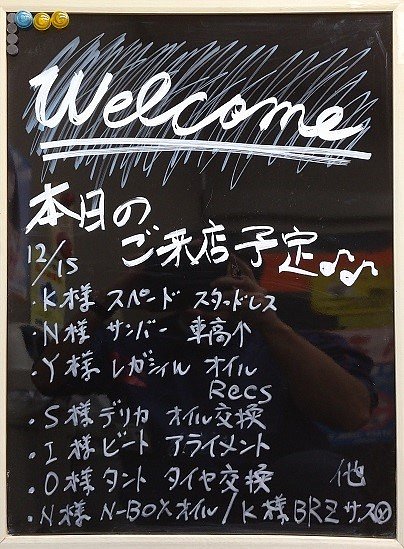 Welcome
本日の
ご来店予定♪♫
12/15
・K様 スペード スタッドレス
・N様 サンバー 車高↑
・Y様 レガシィ オイル
Recs
・S様 デリカ オイル交換
・I様 ビート アライメント
・O様 タント タイヤ交換 他
・N様 N-BOXオイル/K様 BRZ サス